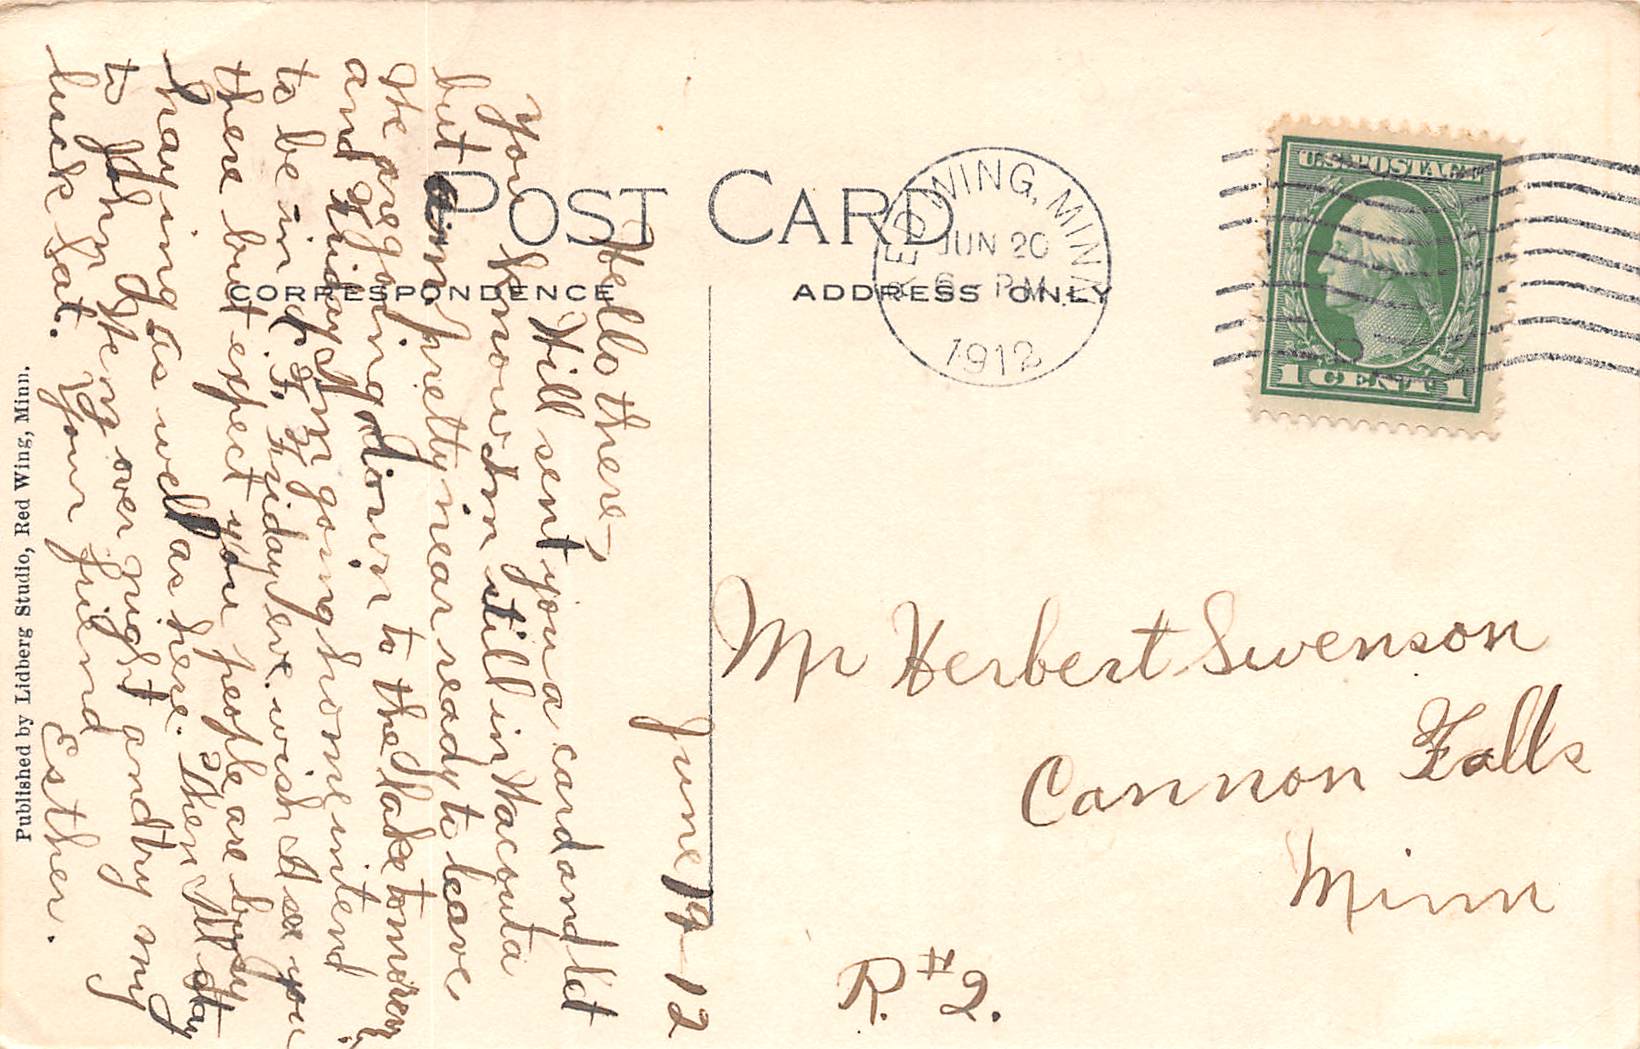 POST CARD
CORRESPONDENCE
ADDRESS ONLY
RED WING, MINN.
JUN 20
6 - PM
1912
U.S. POSTAGE
1 CENT 1
June 19 - 12
Hello there,
Will sent you a card and let
You know I'm still in Wacouta
but am pretty near ready to leave
We are going down to the Lake tomorrow
and Friday I'm going home intend
to be in C. F. Friday eve. wish I see you
there but expect you people are busy
haying as well as here. Then I'll stay
to John Henry over night and try my
luck Sat. Your friend
Esther.
Mr Herbert Swenson
Cannon Falls
Minn
R. #2.
Published by Lidberg Studio, Red Wing, Minn.